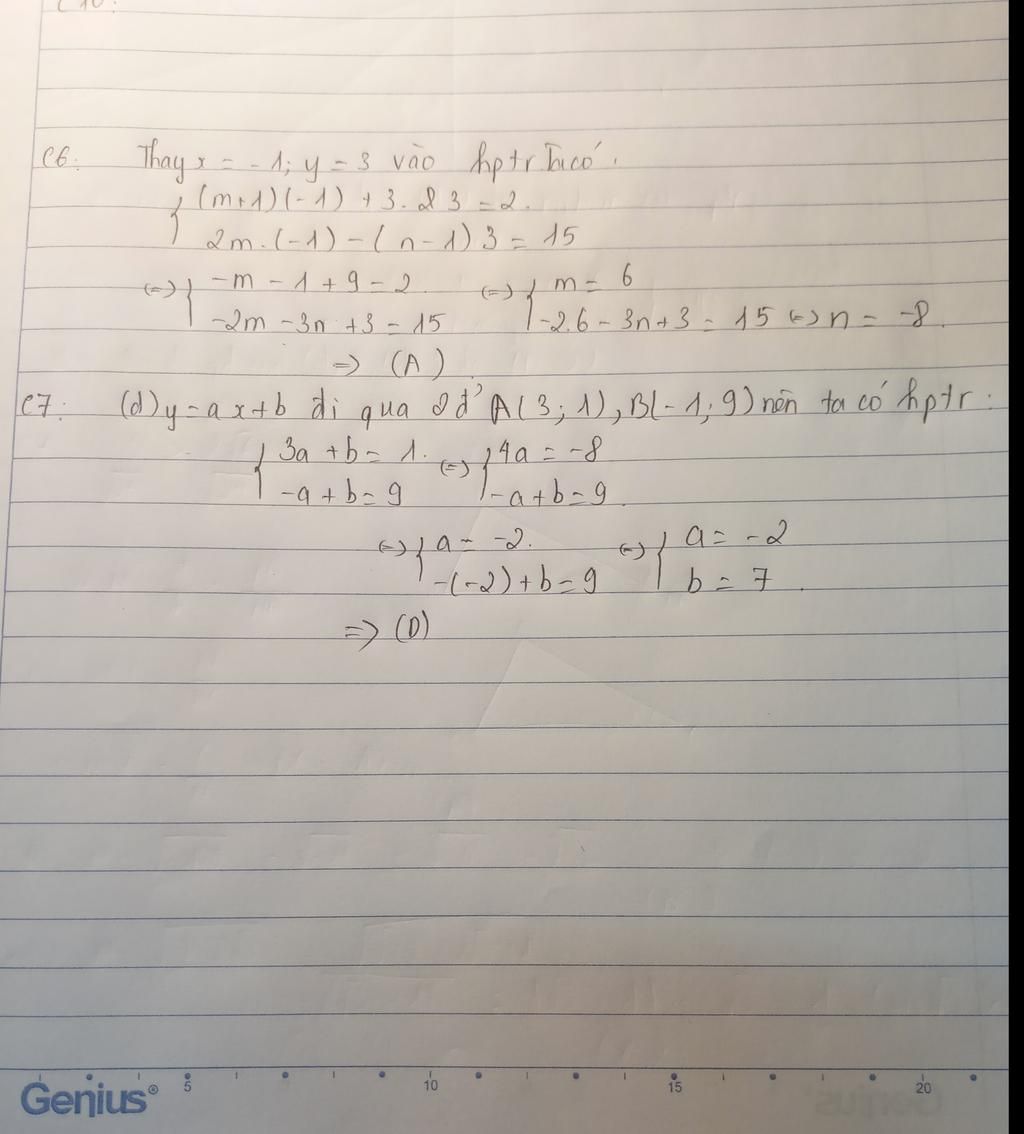 C6: Thay x = -1; y = 3 vào hptr Ta có:
{ (m+1)(-1) + 3. 3 = 2.
2m.(-1) - (n-1) 3 = 15
<=> { -m - 1 + 9 = 2 <=> { m = 6
-2m - 3n + 3 = 15 -2.6 - 3n + 3 = 15 <=> n = -8.
=> (A)
C7: (d) y = ax + b đi qua 2 đ' A(3; 1), B(-1; 9) nên ta có hptr:
{ 3a + b = 1. <=> { 4a = -8
-a + b = 9 -a + b = 9
<=> { a = -2. <=> { a = -2
-(-2) + b = 9 b = 7.
=> (D)
5 10 15 20
Genius®